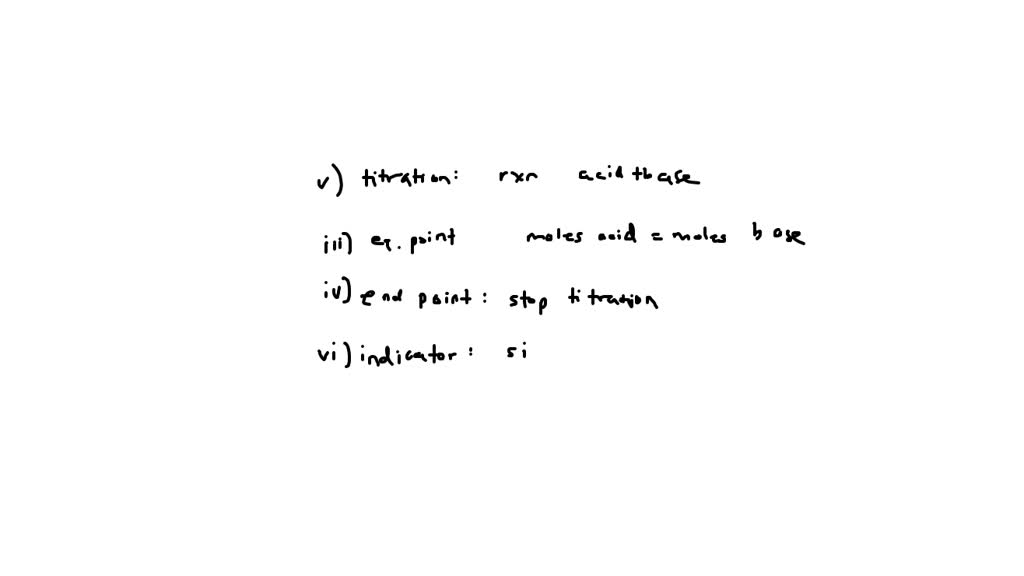 v) titration: rxn acid + base
iii) eq. point moles acid = moles base
iv) end point: stop titration
vi) indicator: si